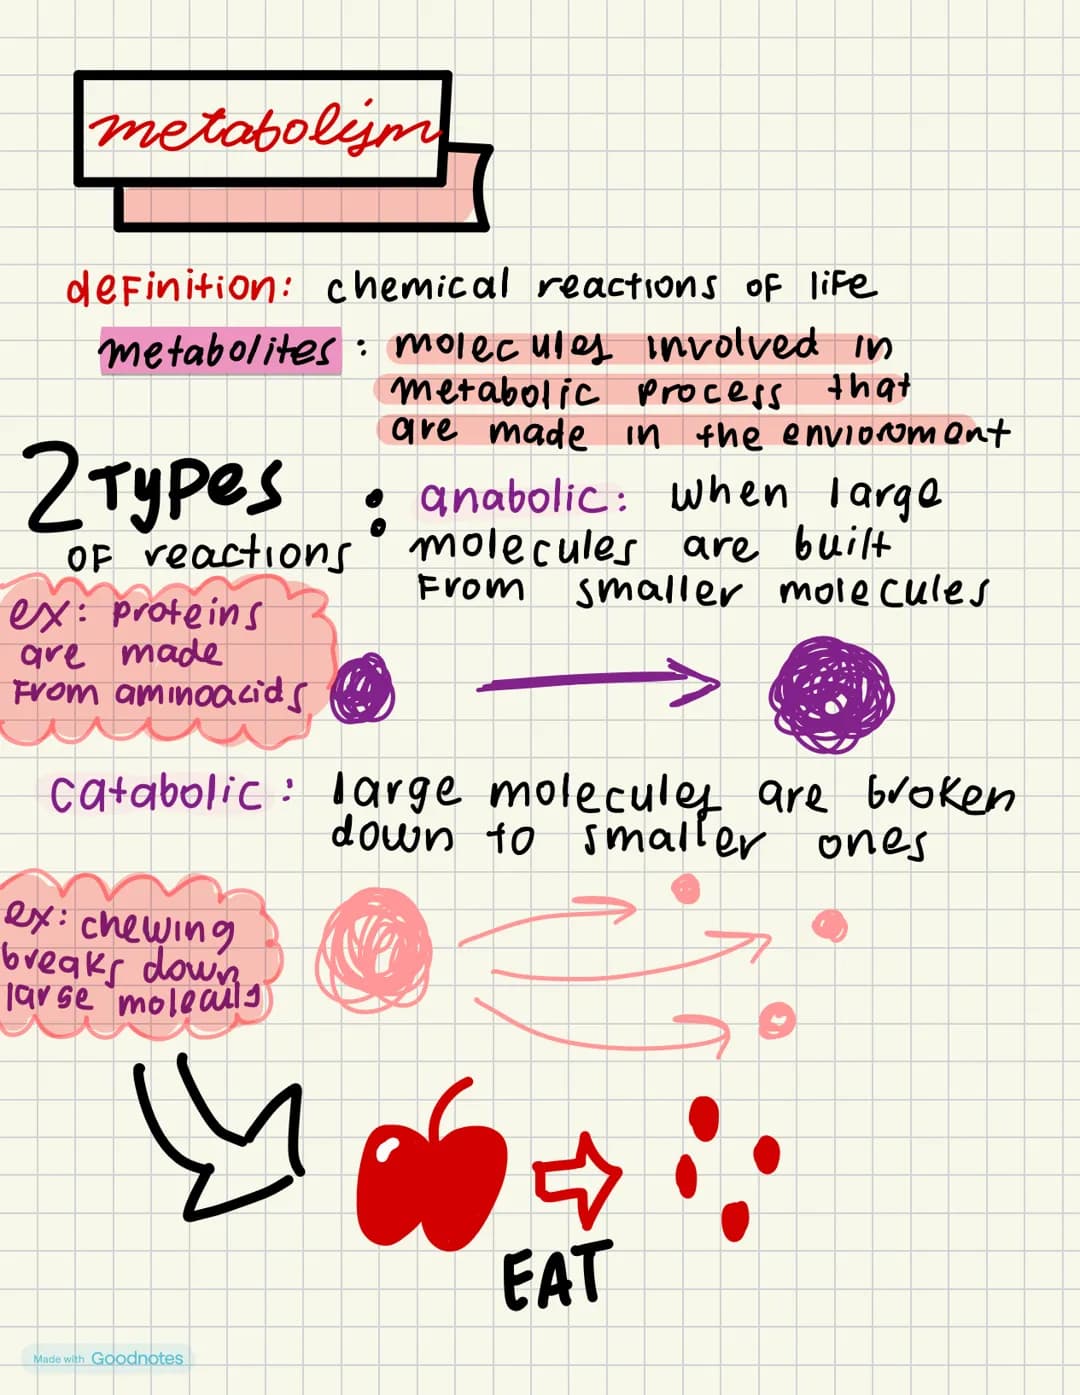 metabolism
definition: chemical reactions of life
metabolites: molecules involved in
metabolic process that
are made in the envioroment
2 Types
of reactions
: anabolic: when large
molecules are built
from smaller molecules
ex: proteins
are made
from aminoacids
catabolic: large molecules are broken
down to smaller ones
ex: chewing
breaks down
large
EAT
Made with Goodnotes